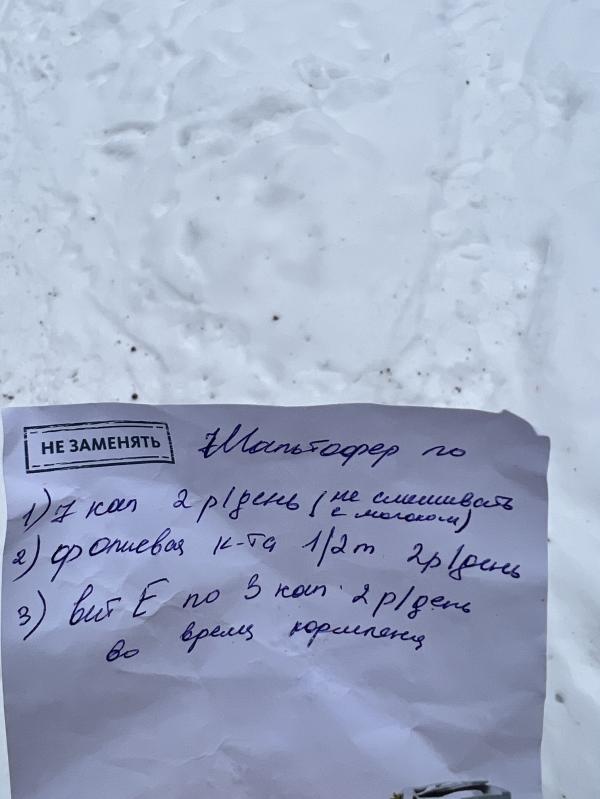 НЕ ЗАМЕНЯТЬ
Мальтофер по
1) 7 кап 2 р/день (не смешивать
с молоком)
2) фолиевая к-та 1/2 т 2р/день
3) вит Е по 3 кап 2 р/день
во время кормления